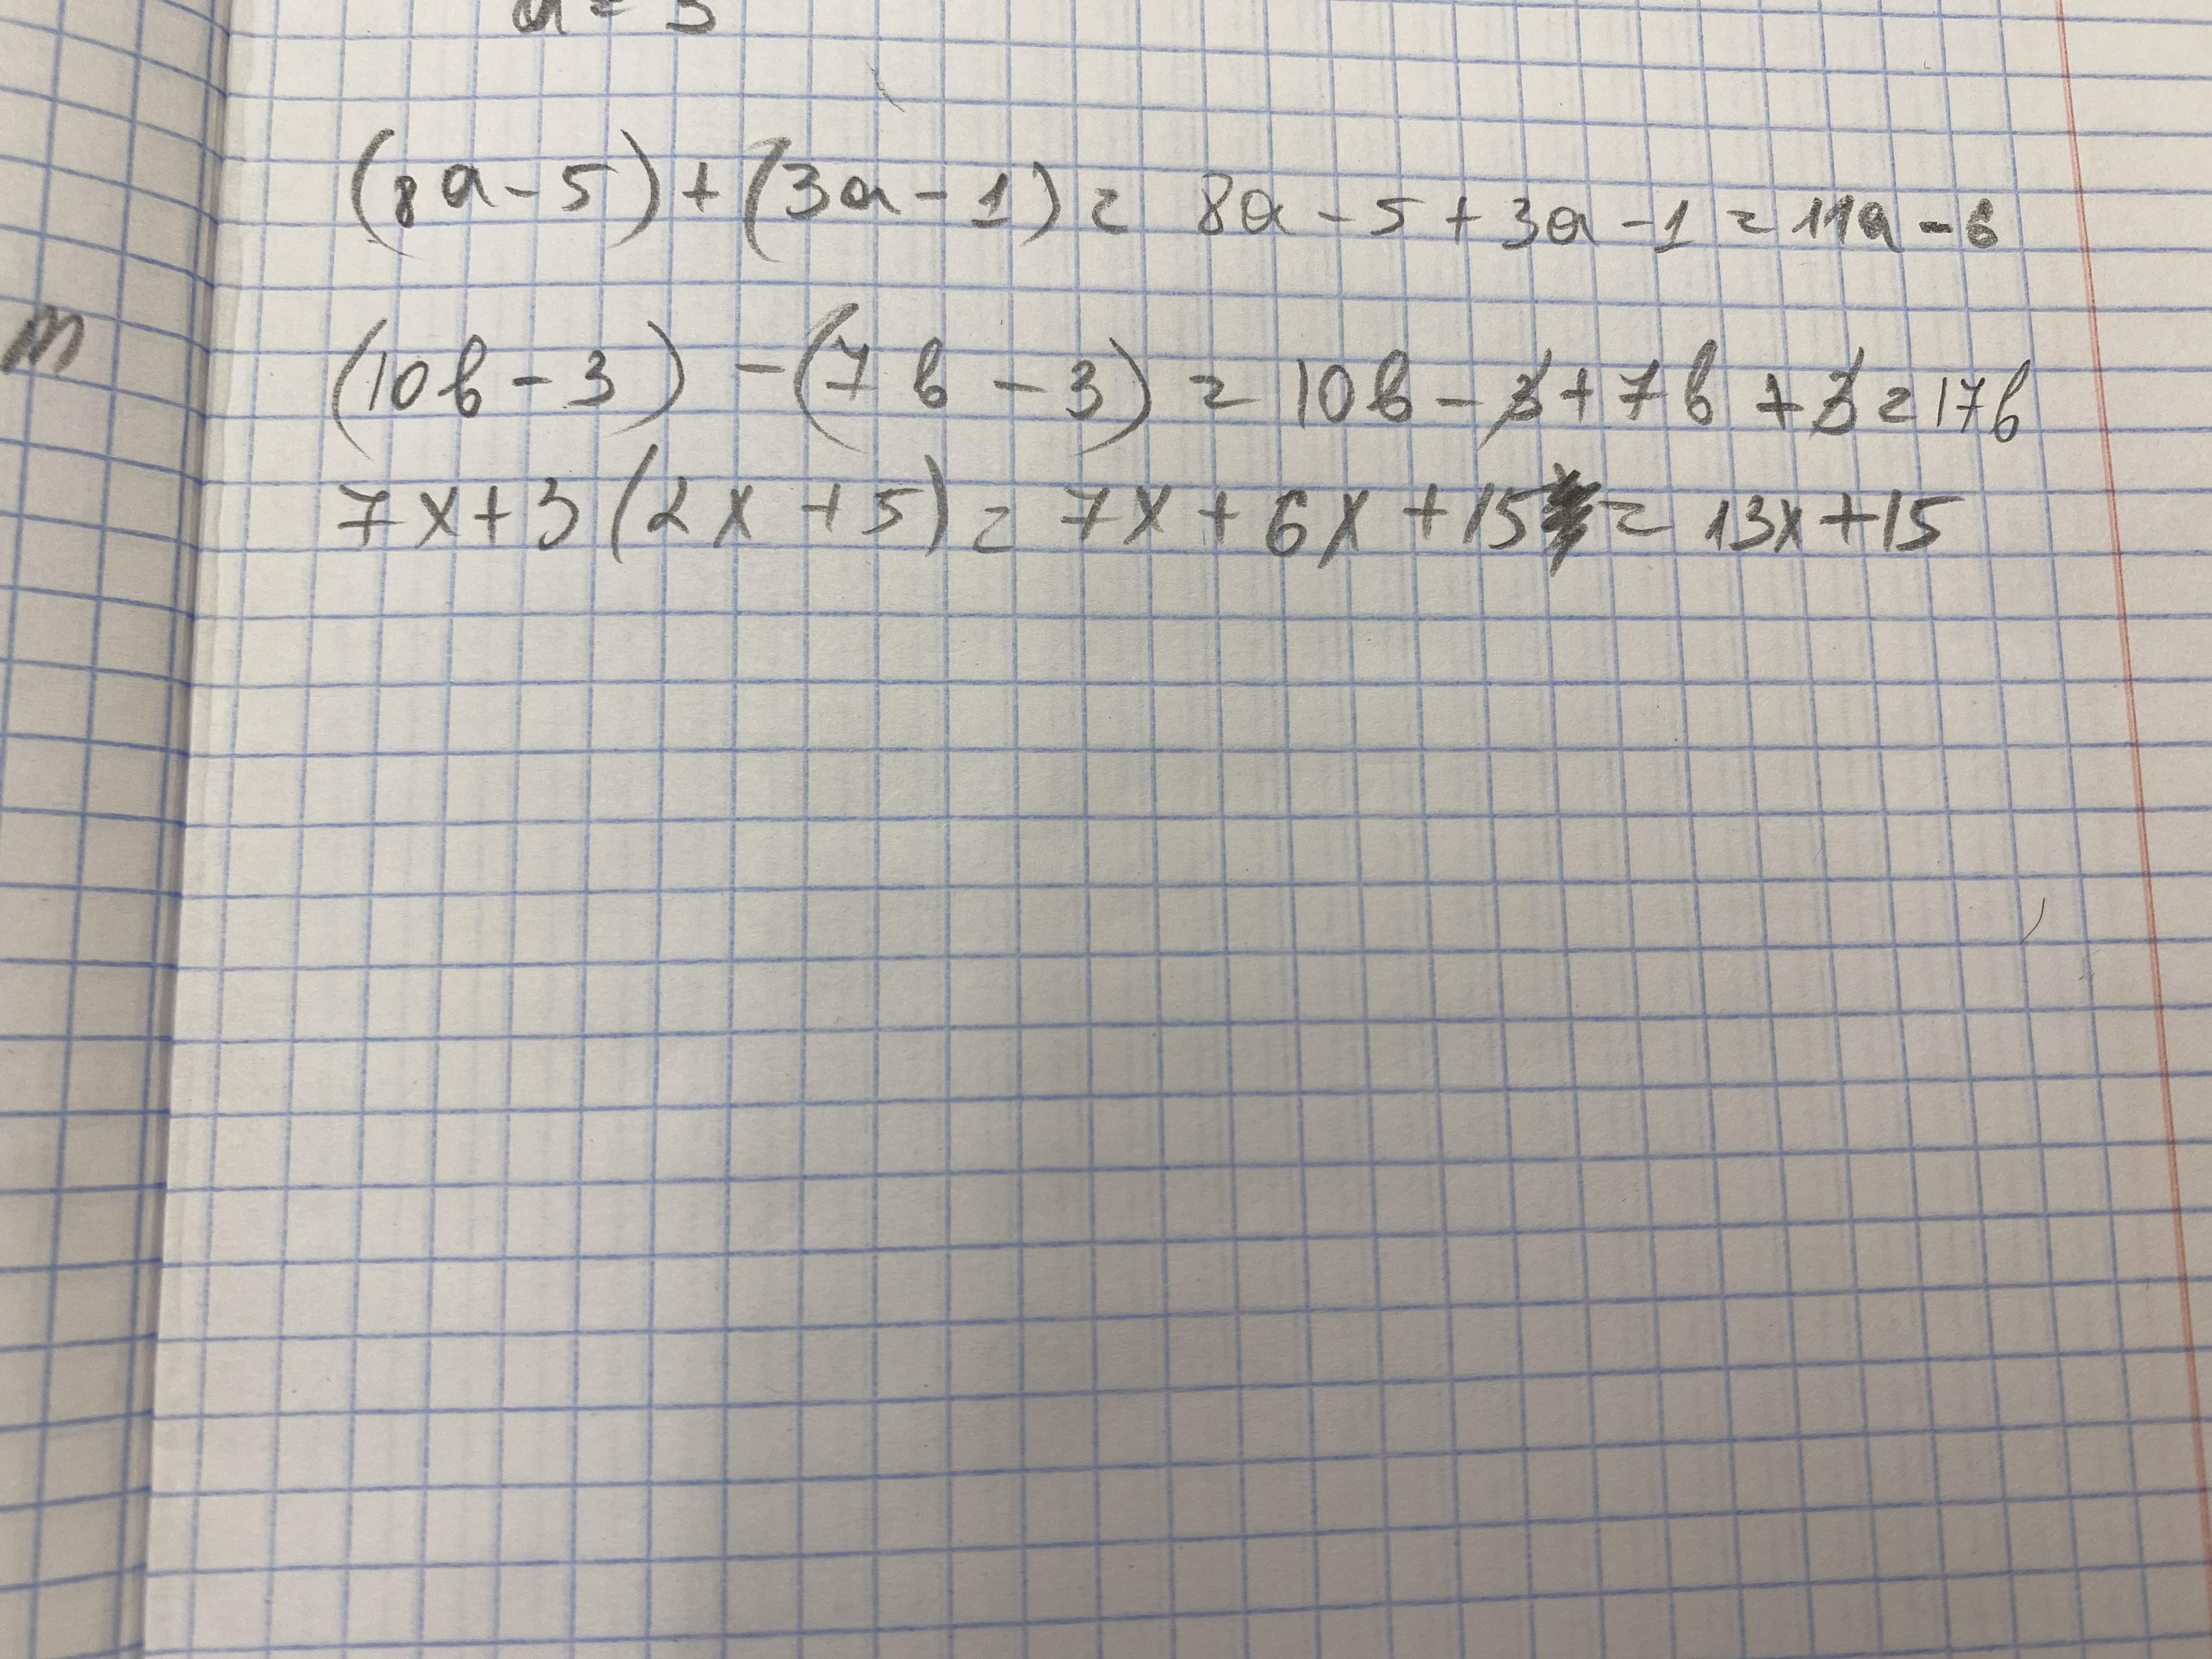 a = 5
(8a - 5) + (3a - 1) = 8a - 5 + 3a - 1 = 11a - 6
m
(10b - 3) - (7b - 3) = 10b - 3 + 7b + 3 = 17b
7x + 3 (2x + 5) = 7x + 6x + 15 = 13x + 15